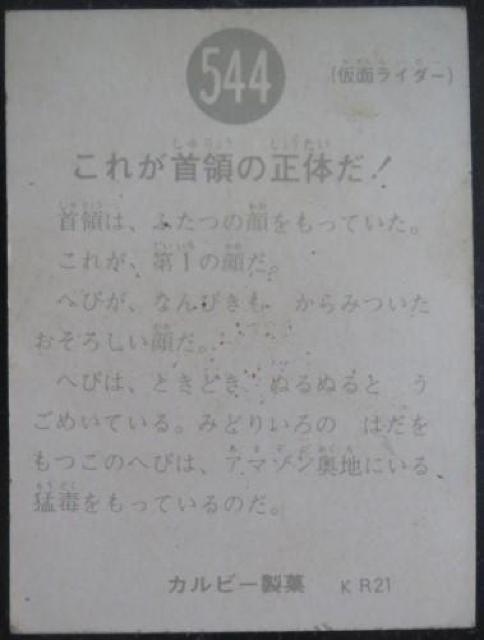 544
(仮面ライダー)
これが首領の正体だ!
首領は、ふたつの顔をもっていた。
これが、第1の顔だ。
へびが、なんびきも からみついた
おそろしい顔だ。
へびは、ときどき ぬるぬると う
ごめいている。みどりいろの はだを
もつこのへびは、アマゾン奥地にいる
猛毒をもっているのだ。
カルビー製菓 KR21